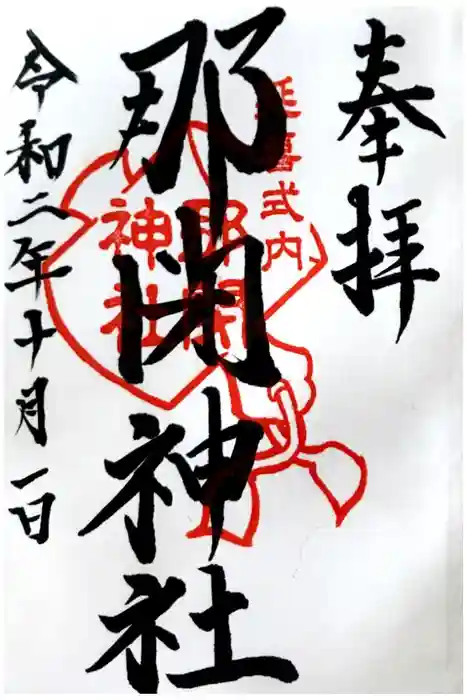 奉拝
延喜式内
那閇神社
那閇神社
令和二年十月一日